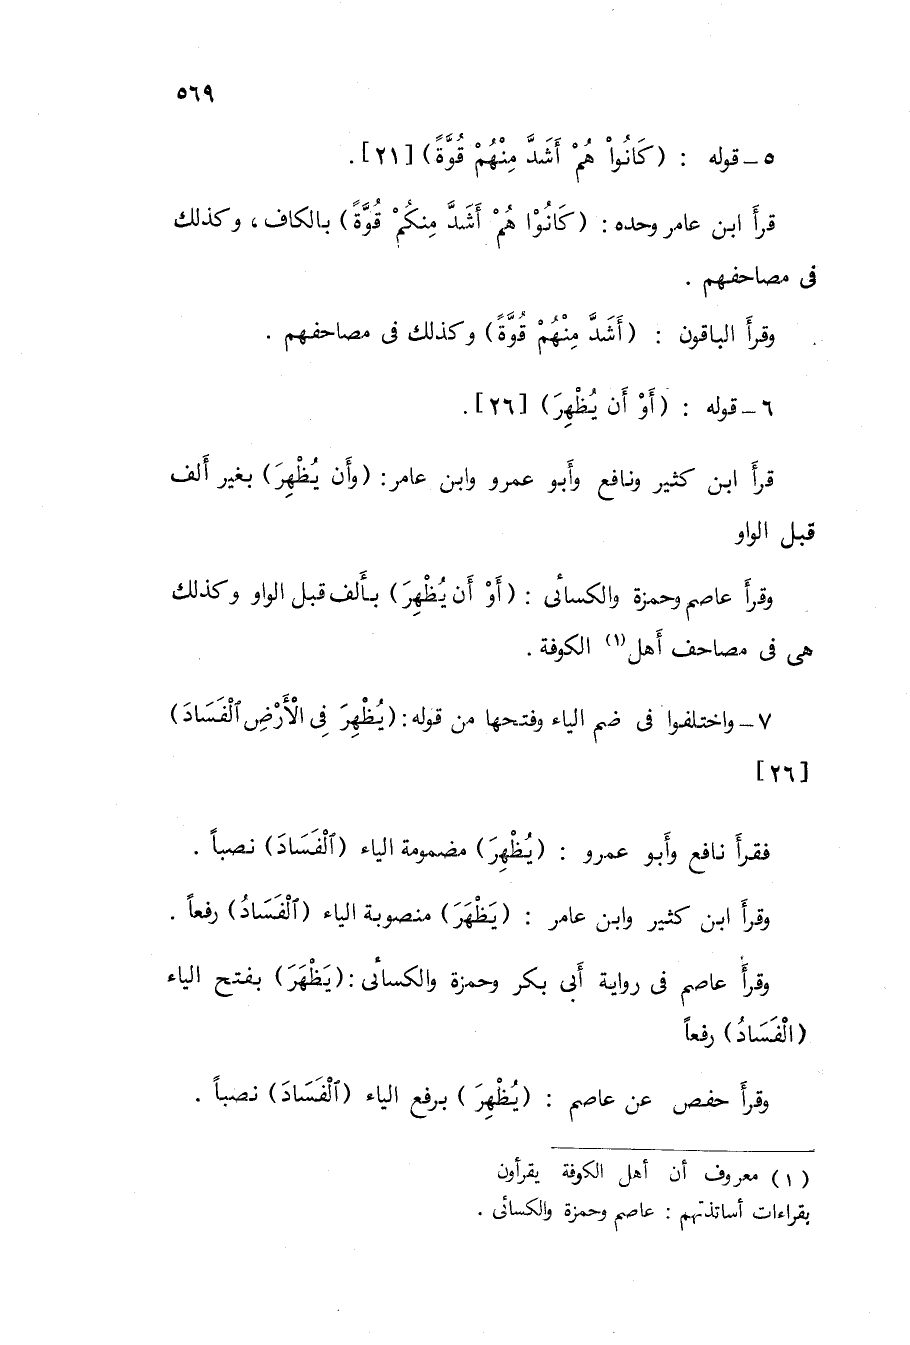 ٥٦٩
٥ – قوله : (كَانُواْ هُمْ أَشَدَّ مِنْهُمْ قُوَّةً) [٢١] .
قرأَ ابن عامر وحده : (كَانُوْا هُمْ أَشَدَّ مِنكُمْ قُوَّةً) بالكاف ، وكذلك
فى مصاحفهم .
وقرأَ الباقون : (أَشَدَّ مِنْهُمْ قُوَّةً) وكذلك فى مصاحفهم .
٦ – قوله : (أَوْ أَن يُظْهِرَ) [٢٦] .
قرأَ ابن كثير ونافع وأَبو عمرو وابن عامر : (وأَن يُظْهِرَ) بغير أَلف
قبل الواو
وقرأَ عاصم وحمزة والكسائى : (أَوْ أَن يُظْهِرَ) بأَلف قبل الواو وكذلك
هى فى مصاحف أَهل(١) الكوفة .
٧ – واختلفوا فى ضم الياء وفتحها من قوله : (يُظْهِرَ فِى الْأَرْضِ ٱلْفَسَادَ)
[٢٦]
فقرأَ نافع وأَبو عمرو : (يُظْهِرَ) مضمومة الياء (ٱلْفَسَادَ) نصباً .
وقرأَ ابن كثير وابن عامر : (يَظْهَرَ) منصوبة الياء (ٱلْفَسَادُ) رفعاً .
وقرأَ عاصم فى رواية أَبى بكر وحمزة والكسائى : (يَظْهَرَ) بفتح الياء
(الْفَسَادُ) رفعاً
وقرأَ حفص عن عاصم : (يُظْهِرَ) برفع الياء (ٱلْفَسَادَ) نصباً .
(١) معروف أن أهل الكوفة يقرأون
بقراءات أساتذتهم : عاصم وحمزة والكسائى .